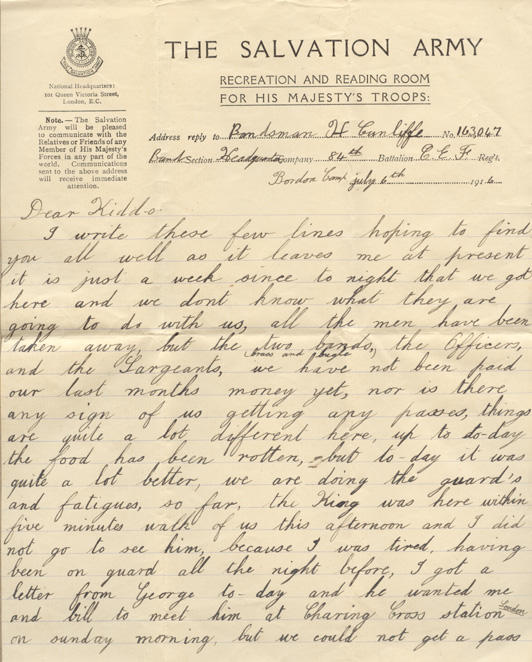 THE SALVATION ARMY
RECREATION AND READING ROOM
FOR HIS MAJESTY'S TROOPS:
National Headquarters:
101 Queen Victoria Street,
London, E.C.
Note.—The Salvation
Army will be pleased
to communicate with the
Relatives or Friends of any
Member of His Majesty's
Forces in any part of the
world. Communications
sent to the above address
will receive immediate
attention.
Address reply to Bandsman H Cunliffe No. 163,047
Band Section Headquarters Company 84th Battalion C.E.F. Reg't.
Bordon Camp july 6th 1916
Dear Kiddo
I write these few lines hoping to find
you all well as it leaves me at present
it is just a week since to night that we got
here and we dont know what they are
going to do with us, all the men have been
taken away, but the two bands, the Officers,
brass and bugle
and the Sargeants, we have not been paid
our last months money yet, nor is there
any sign of us getting any passes, things
are quite a lot different here, up to to-day
the food has been rotten, but to-day it was
quite a lot better, we are doing the guard's
and fatigues, so far, the King was here within
five minutes walk of us this afternoon and I did
not go to see him, because I was tired, having
been on guard all the night before, I got a
letter from George to-day and he wanted me
and bill to meet him at Charing Cross station London
on sunday morning, but we could not get a pass